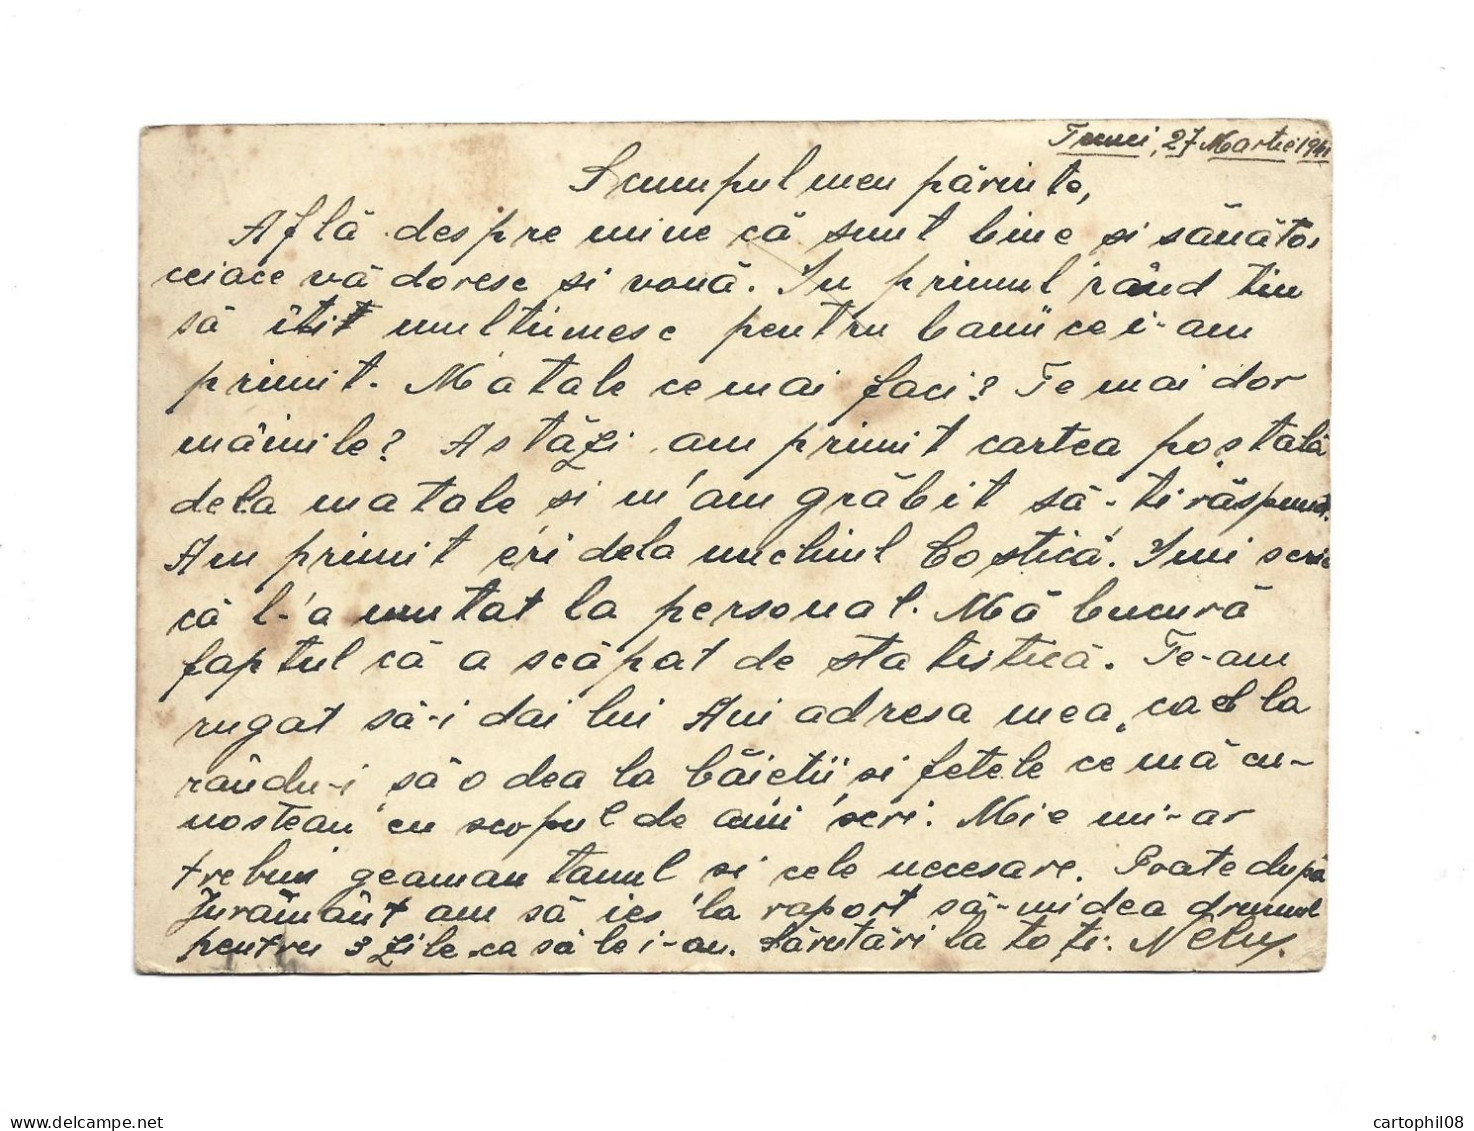 27 Martie 194
Scumpul meu părinte,
Află despre mine că sunt bine si sănătos
ceiace vă doresc si vouă. In primul rând tin
să îtit multumesc pentru banii ce i-am
primit. Matale ce mai faci? Te mai dor
mâinile? Astăzi am primit cartea postală
dela matale si m'am grăbit să-ti răspund.
Am primit eri dela unchiul Costică. Imi scrie
că l-a mutat la personal. Mă bucură
faptul că a scăpat de statistică. Te-am
rugat să-i dai lui Ani adresa mea, ca el la
rându-i să o dea la băietii si fetele ce mă cu-
nosteau cu scopul de a'mi scri. Mie mi-ar
trebui geamantanul si cele necesare. Poate după
Jurământ am să ies la raport să-mi dea drumul
pentru 3 zile ca să le i-au. Sărutări la toti. Nelu.
cartophil08